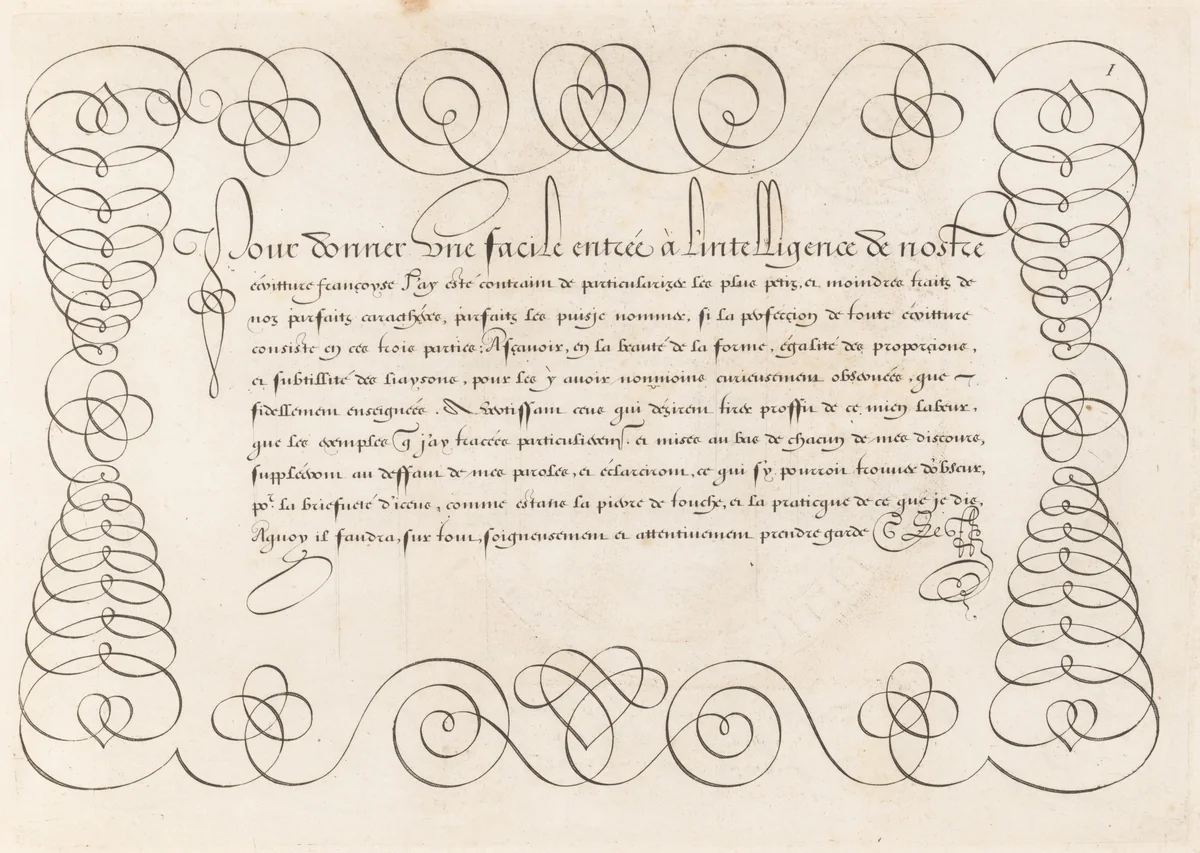 I
Pour donner Vne facile entrée à L'intelligence de nostre
écritture françoyse J'ay esté contraint de particularizer les plus petiz, et moindres traitz de
noz parfaitz caracthéres, parfaitz les puisje nommer, si la perfecçion de toute écritture
consiste en ces trois parties: Asçavoir, en la beauté de la forme, égalité des proporçions,
et subtillité des liaysons, pour les y avoir nonmoins curieusement obseruées, que
fidellement enseignées. Avertissant ceus qui dézirent tirer proffit de ce mien labeur,
que les exemples q̃ j'ay tracées particulierem̃t. et mises au bas de chacun de mes discours,
suppléeront au deffaut de mes paroles, et éclarciront, ce qui s'y pourroit trouuer d'obscur,
por. la briefueté d'iceus, comme estans la pierre de touche, et la praticque de ce que je dis,
Aquoy il faudra, sur tout, soigneusement et attentivement prendre garde